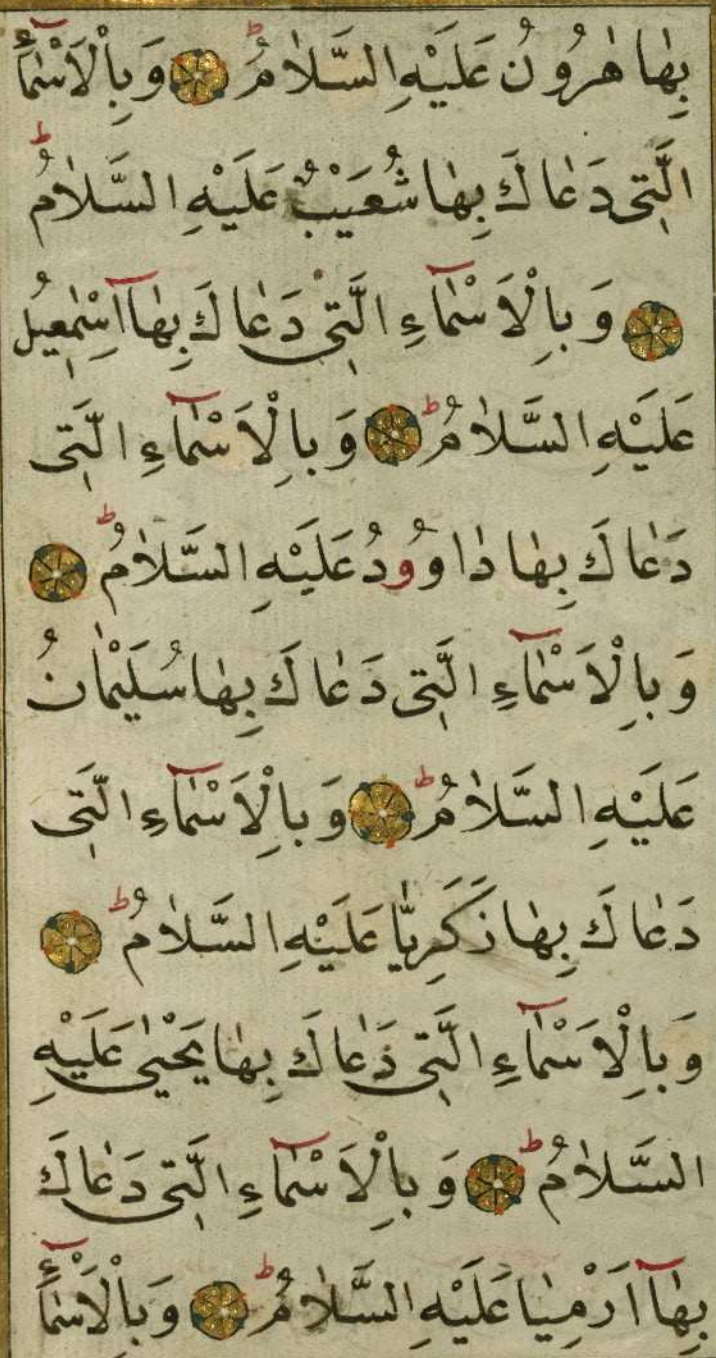 بِهٰا هٰرُونُ عَلَيْهِ السَّلٰامُ ط وَبِاْلاَسْمٰآءِ
الَّتِى دَعٰاكَ بِهٰا شُعَيْبٌ عَلَيْهِ السَّلٰامُ ط
وَبِاْلاَسْمٰآءِ الَّتِى دَعٰاكَ بِهٰآ اِسْمٰعِيلُ
عَلَيْهِ السَّلٰامُ ط وَبِاْلاَسْمٰآءِ الَّتِى
دَعٰاكَ بِهٰا دٰاوُودُ عَلَيْهِ السَّلٰامُ ط
وَبِاْلاَسْمٰآءِ الَّتِى دَعٰاكَ بِهٰا سُلَيْمٰانُ
عَلَيْهِ السَّلٰامُ ط وَبِاْلاَسْمٰآءِ الَّتِى
دَعٰاكَ بِهٰا زَكَرِيّٰا عَلَيْهِ السَّلٰامُ ط
وَبِاْلاَسْمٰآءِ الَّتِى دَعٰاكَ بِهٰا يَحْيٰى عَلَيْهِ
السَّلٰامُ ط وَبِاْلاَسْمٰآءِ الَّتِى دَعٰاكَ
بِهٰآ اَرْمِيٰا عَلَيْهِ السَّلٰامُ ط وَبِاْلاَسْمٰآءِ